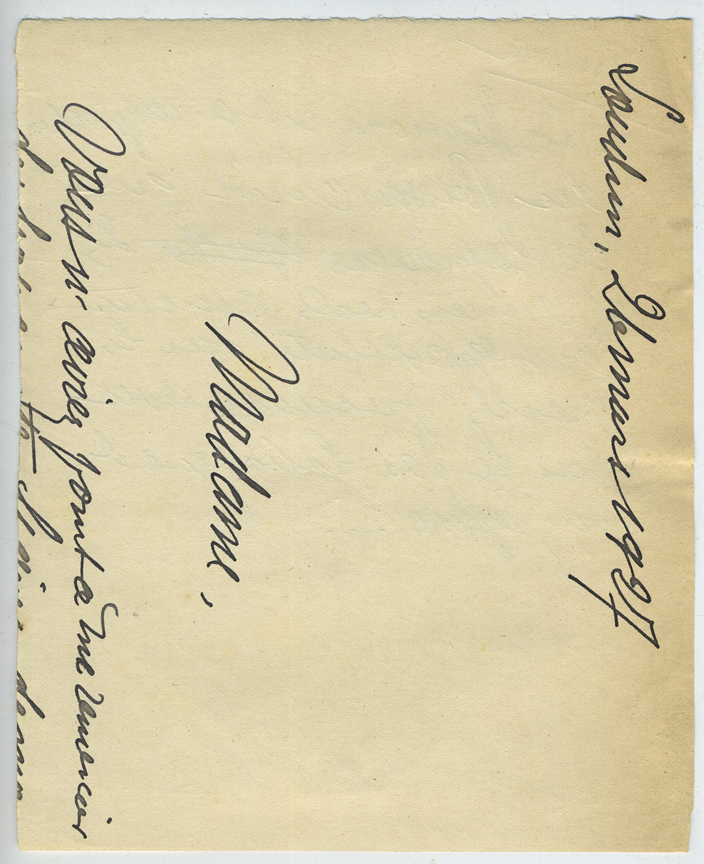 Loudun, 26 mars 1927
Madame,
Vous n'aviez point à me remercier